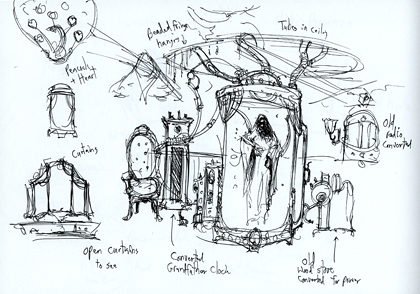 Beaded fringe
hanging
Tubes in coils
Peacock +
Heart
Curtains
Old
radio
converted
Open curtains
to see
Converted
Grandfather Clock
Old
Wood stove
Converted for power